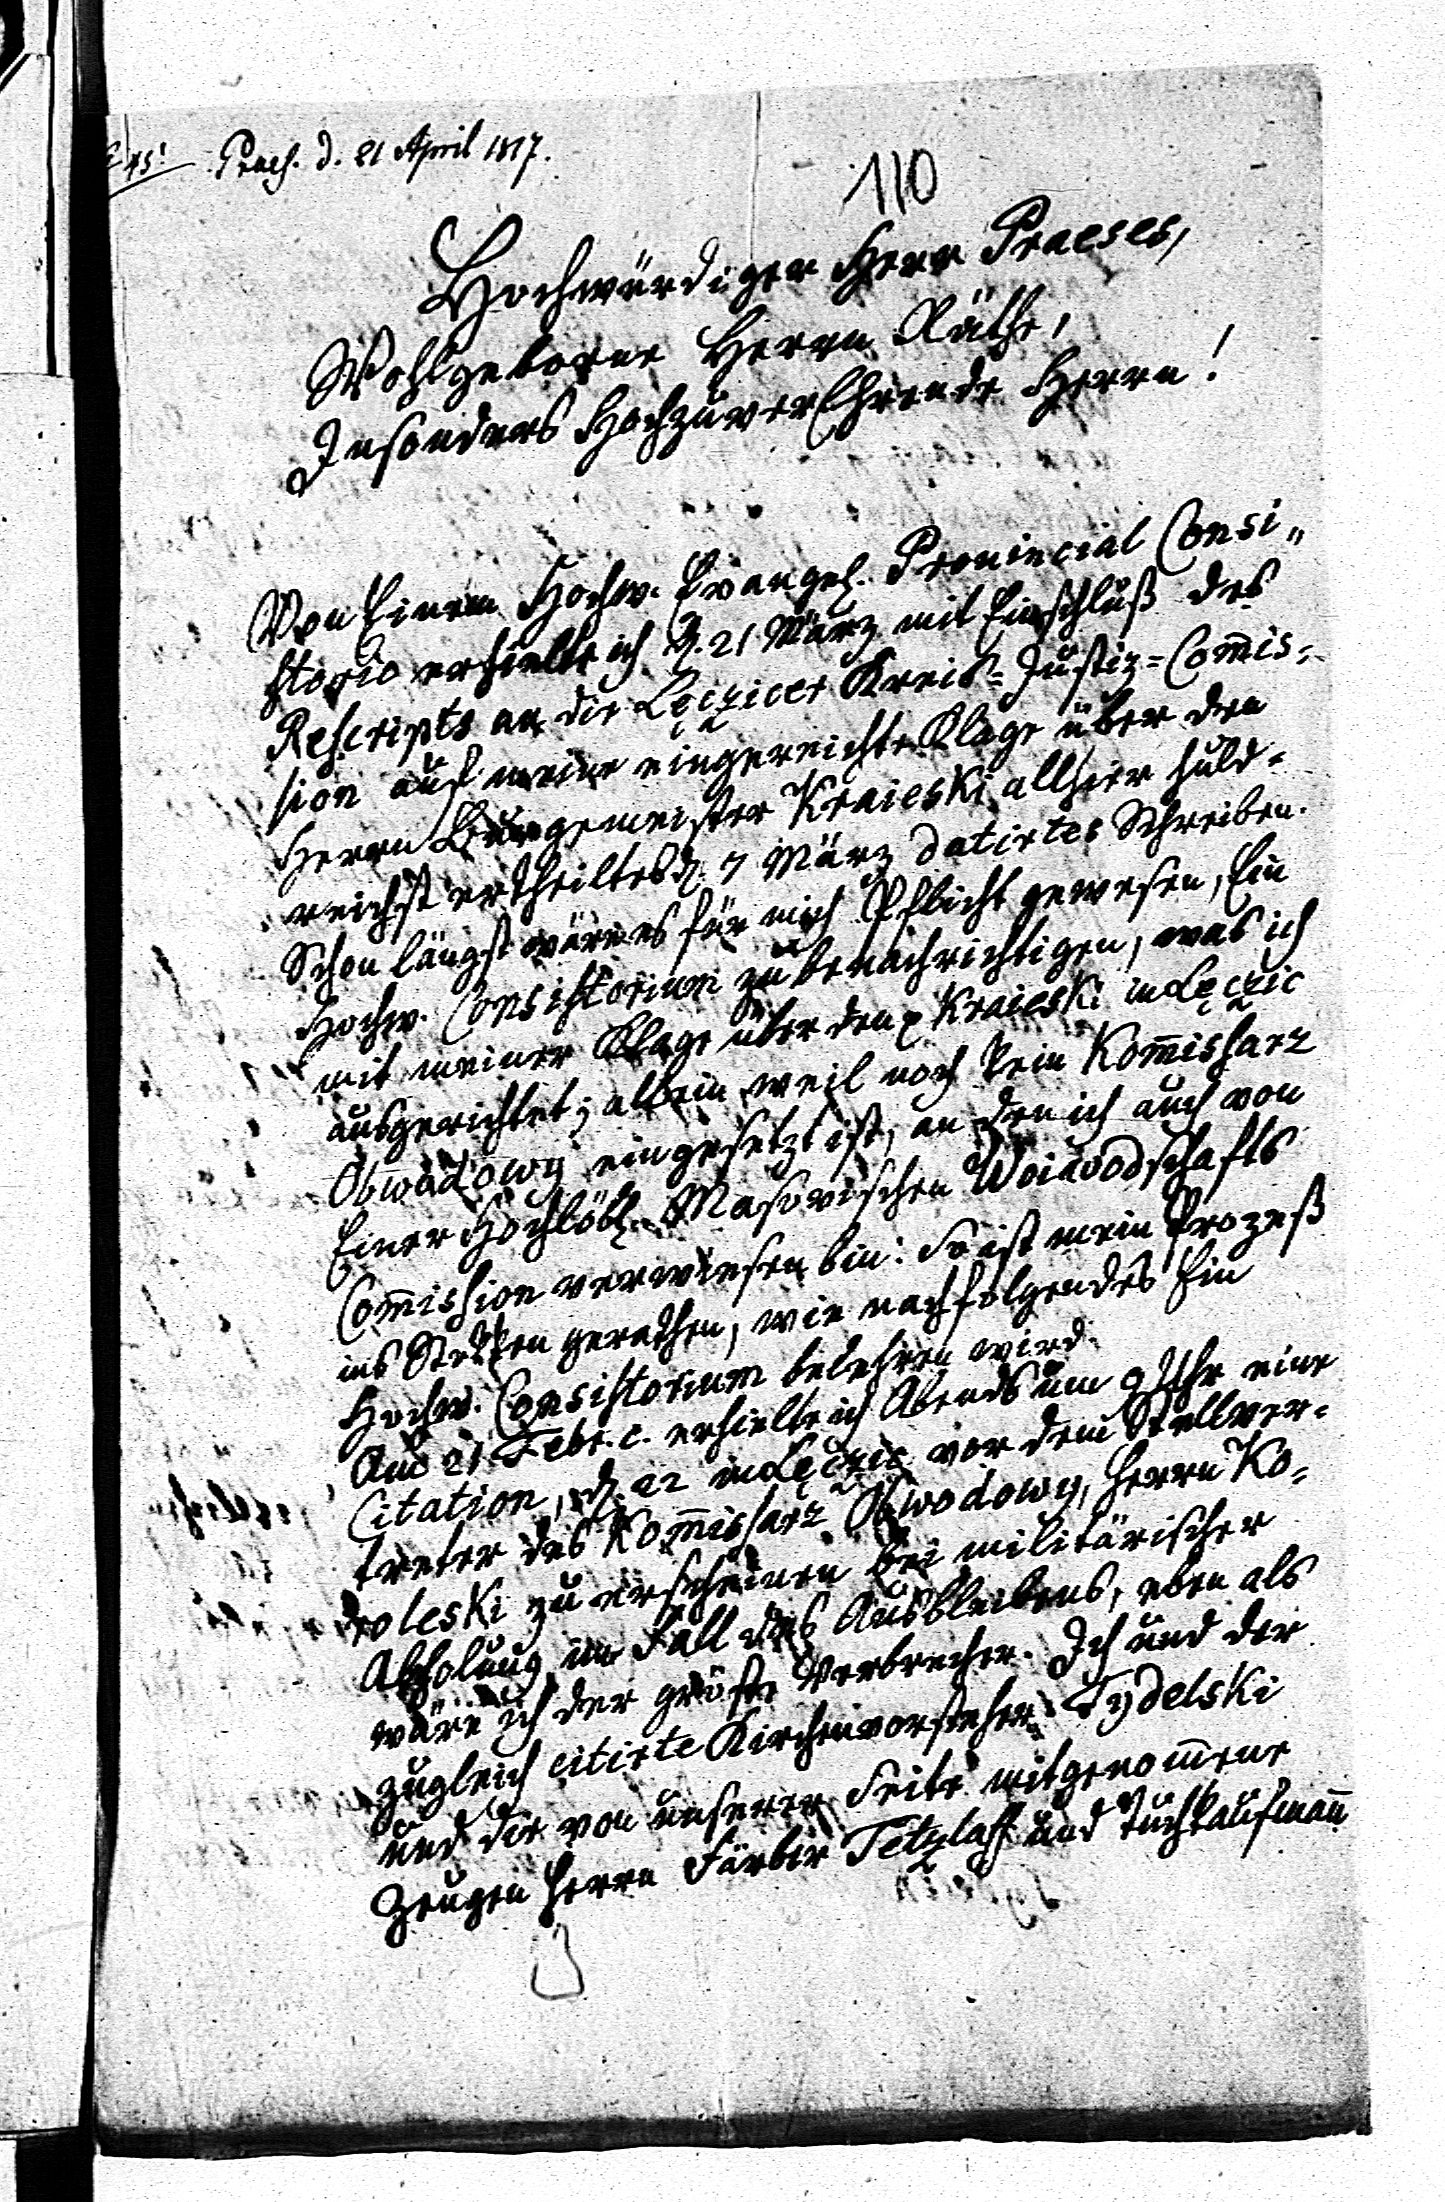 45! Praes. d. 21 April 1817.
110
Hochwürdiger Herr Praeses,
Wohlgeborne Herrn Räthe,
Insonders Hochzuverehrende Herrn!
Von Einem Hochw. Evangel. Provincial Consi„
storio erhielte ich d. 21 März mit Einschluß des
Rescripts an die Lęczicer Kreis-Justiz-Com̄is-
sion auf meine eingereichte Klage über den
Herrn Burgemeister Kraieski allhier huld-
reichst ertheiltes d. 7 März datirtes Schreiben.
Schon längst wäre es für mich Pflicht gewesen, Ein
Hochw. Consistorium zu benachrichtigen, was ich
mit meiner Klage über den p Kraieski in Lęczic
ausgerichtet; allein weil noch kein Kom̄issarz
Obwodowy eingesetzt ist, an den ich auch von
Einer Hochlöbl. Masovischen Woiwodschafts
Com̄ission verwiesen bin: So ist mein Prozeß
ins Stekken gerathen, wie nachfolgendes Ein
Hochw. Consistorium belehren wird.
Am 21 Febr. c. erhielte ich Abends um 9 Uhr eine
Citation, d. 22 in Lęczic vor dem Stellver-
treter des Kom̄issarz Obwodowy, Herrn Ko-
roleski zu erscheinen bei militärischer
Abholung im Fall des Ausbleibens, eben als
wäre ich der größte Verbrecher. Ich und der
zugleich citirte Kirchenvorsteher Tydelski
und die von unserer Seite mitgenom̄ene
Zeugen Herrn Färber Tetzlaff und Tuchkaufman̄